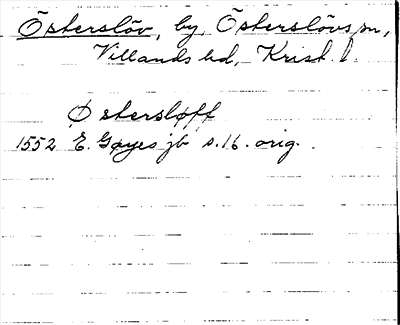 Österslöv, by, Österslövs sn,
Villands hd, Krist. l.
Østersløff
1552 E. Gøyes jb s. 16. orig.